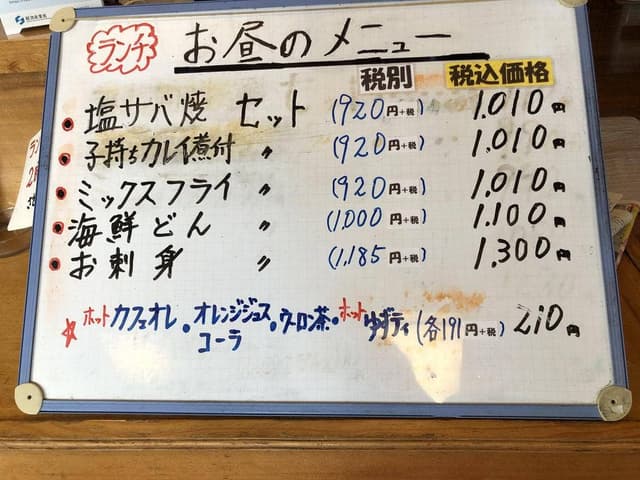 ランチ お昼のメニュー
税別 税込価格
● 塩サバ焼 セット (920円+税) 1,010円
● 子持ちカレイ煮付 〃 (920円+税) 1,010円
● ミックスフライ 〃 (920円+税) 1,010円
● 海鮮どん 〃 (1,000円+税) 1,100円
● お刺身 〃 (1,185円+税) 1,300円
☆ ホットカフェオレ・オレンジジュース・ウーロン茶・ホットゆずティ (各191円+税) 210円
コーラ